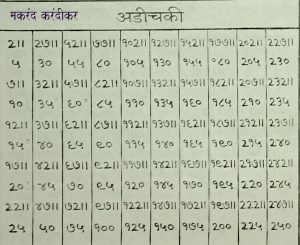 मकरंद करंदीकर अडीचकी
२॥ २७॥ ५२॥ ७७॥ १०२॥ १२७॥ १५२॥ १७७॥ २०२॥ २२७॥
५ ३० ५५ ८० १०५ १३० १५५ १८० २०५ २३०
७॥ ३२॥ ५७॥ ८२॥ १०७॥ १३२॥ १५७॥ १८२॥ २०७॥ २३२॥
१० ३५ ६० ८५ ११० १३५ १६० १८५ २१० २३५
१२॥ ३७॥ ६२॥ ८७॥ ११२॥ १३७॥ १६२॥ १८७॥ २१२॥ २३७॥
१५ ४० ६५ ९० ११५ १४० १६५ १९० २१५ २४०
१७॥ ४२॥ ६७॥ ९२॥ ११७॥ १४२॥ १६७॥ १९२॥ २१७॥ २४२॥
२० ४५ ७० ९५ १२० १४५ १७० १९५ २२० २४५
२२॥ ४७॥ ७२॥ ९७॥ १२२॥ १४७॥ १७२॥ १९७॥ २२२॥ २४७॥
२५ ५० ७५ १०० १२५ १५० १७५ २०० २२५ २५०